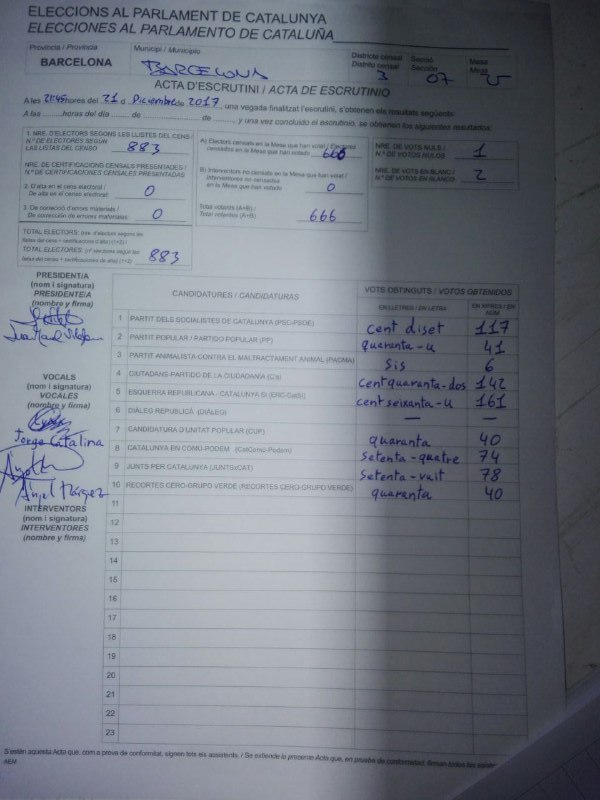 ELECCIONS AL PARLAMENT DE CATALUNYA
ELECCIONES AL PARLAMENTO DE CATALUÑA
Província / Provincia
BARCELONA
Municipi / Municipio
BARCELONA
Districte censal
Distrito censal
3
Secció
Sección
07
Mesa
Mesa
ACTA D'ESCRUTINI / ACTA DE ESCRUTINIO
A les 21:45 hores del 21 d Diciembre de 2017, una vegada finalitzat l'escrutini, s'obtenen els resultats següents:
A las ........ horas del día ........ de ........ de ........, y una vez concluido el escrutinio, se obtienen los siguientes resultados:
1. NRE. D'ELECTORS SEGONS LES LLISTES DEL CENS /
N.º DE ELECTORES SEGÚN
LAS LISTAS DEL CENSO
883
NRE. DE CERTIFICACIONS CENSALS PRESENTADES /
N.º DE CERTIFICACIONES CENSALES PRESENTADAS
2. D'alta en el cens electoral /
De alta en el censo electoral:
0
3. De correcció d'errors materials /
De corrección de errores materiales:
0
TOTAL ELECTORS: (nre. d'electors segons les
llistes del cens + certificacions d'alta) (1+2) /
TOTAL ELECTORES: (nº electores según las
listas del censo + certificaciones de alta) (1+2)
883
A) Electors censats en la Mesa que han votat / Electores
censados en la Mesa que han votado
666
B) Interventors no censats en la Mesa que han votat /
Interventores no censados
en la Mesa que han votado
0
Total votants (A+B) /
Total votantes (A+B)
666
NRE. DE VOTS NULS /
N.º DE VOTOS NULOS
1
NRE. DE VOTS EN BLANC /
N.º DE VOTOS EN BLANCO
2
PRESIDENT/A
(nom i signatura)
PRESIDENTE/A
(nombre y firma)
VOCALS
(nom i signatura)
VOCALES
(nombre y firma)
Jorge Catalina
Ángel Márquez
INTERVENTORS
(nom i signatura)
INTERVENTORES
(nombre y firma)
CANDIDATURES / CANDIDATURAS
VOTS OBTINGUTS / VOTOS OBTENIDOS
EN LLETRES / EN LETRA
EN XIFRES / EN NÚM.
1 PARTIT DELS SOCIALISTES DE CATALUNYA (PSC-PSOE) cent diset 117
2 PARTIT POPULAR / PARTIDO POPULAR (PP) quaranta-u 41
3 PARTIT ANIMALISTA CONTRA EL MALTRACTAMENT ANIMAL (PACMA) sis 6
4 CIUTADANS-PARTIDO DE LA CIUDADANÍA (C's) cent quaranta-dos 142
5 ESQUERRA REPUBLICANA - CATALUNYA SÍ (ERC-CatSí) cent seixanta-u 161
6 DIÀLEG REPUBLICÀ (DIÀLEG) — —
7 CANDIDATURA D'UNITAT POPULAR (CUP) quaranta 40
8 CATALUNYA EN COMÚ-PODEM (CatComú-Podem) setenta-quatre 74
9 JUNTS PER CATALUNYA (JUNTSxCAT) setenta-vuit 78
10 RECORTES CERO-GRUPO VERDE (RECORTES CERO-GRUPO VERDE) quaranta 40
11
12
13
14
15
16
17
18
19
20
21
22
23
S'estén aquesta Acta que, com a prova de conformitat, signen tots els assistents. / Se extiende la presente Acta que, en prueba de conformidad, firman todos los
AEM